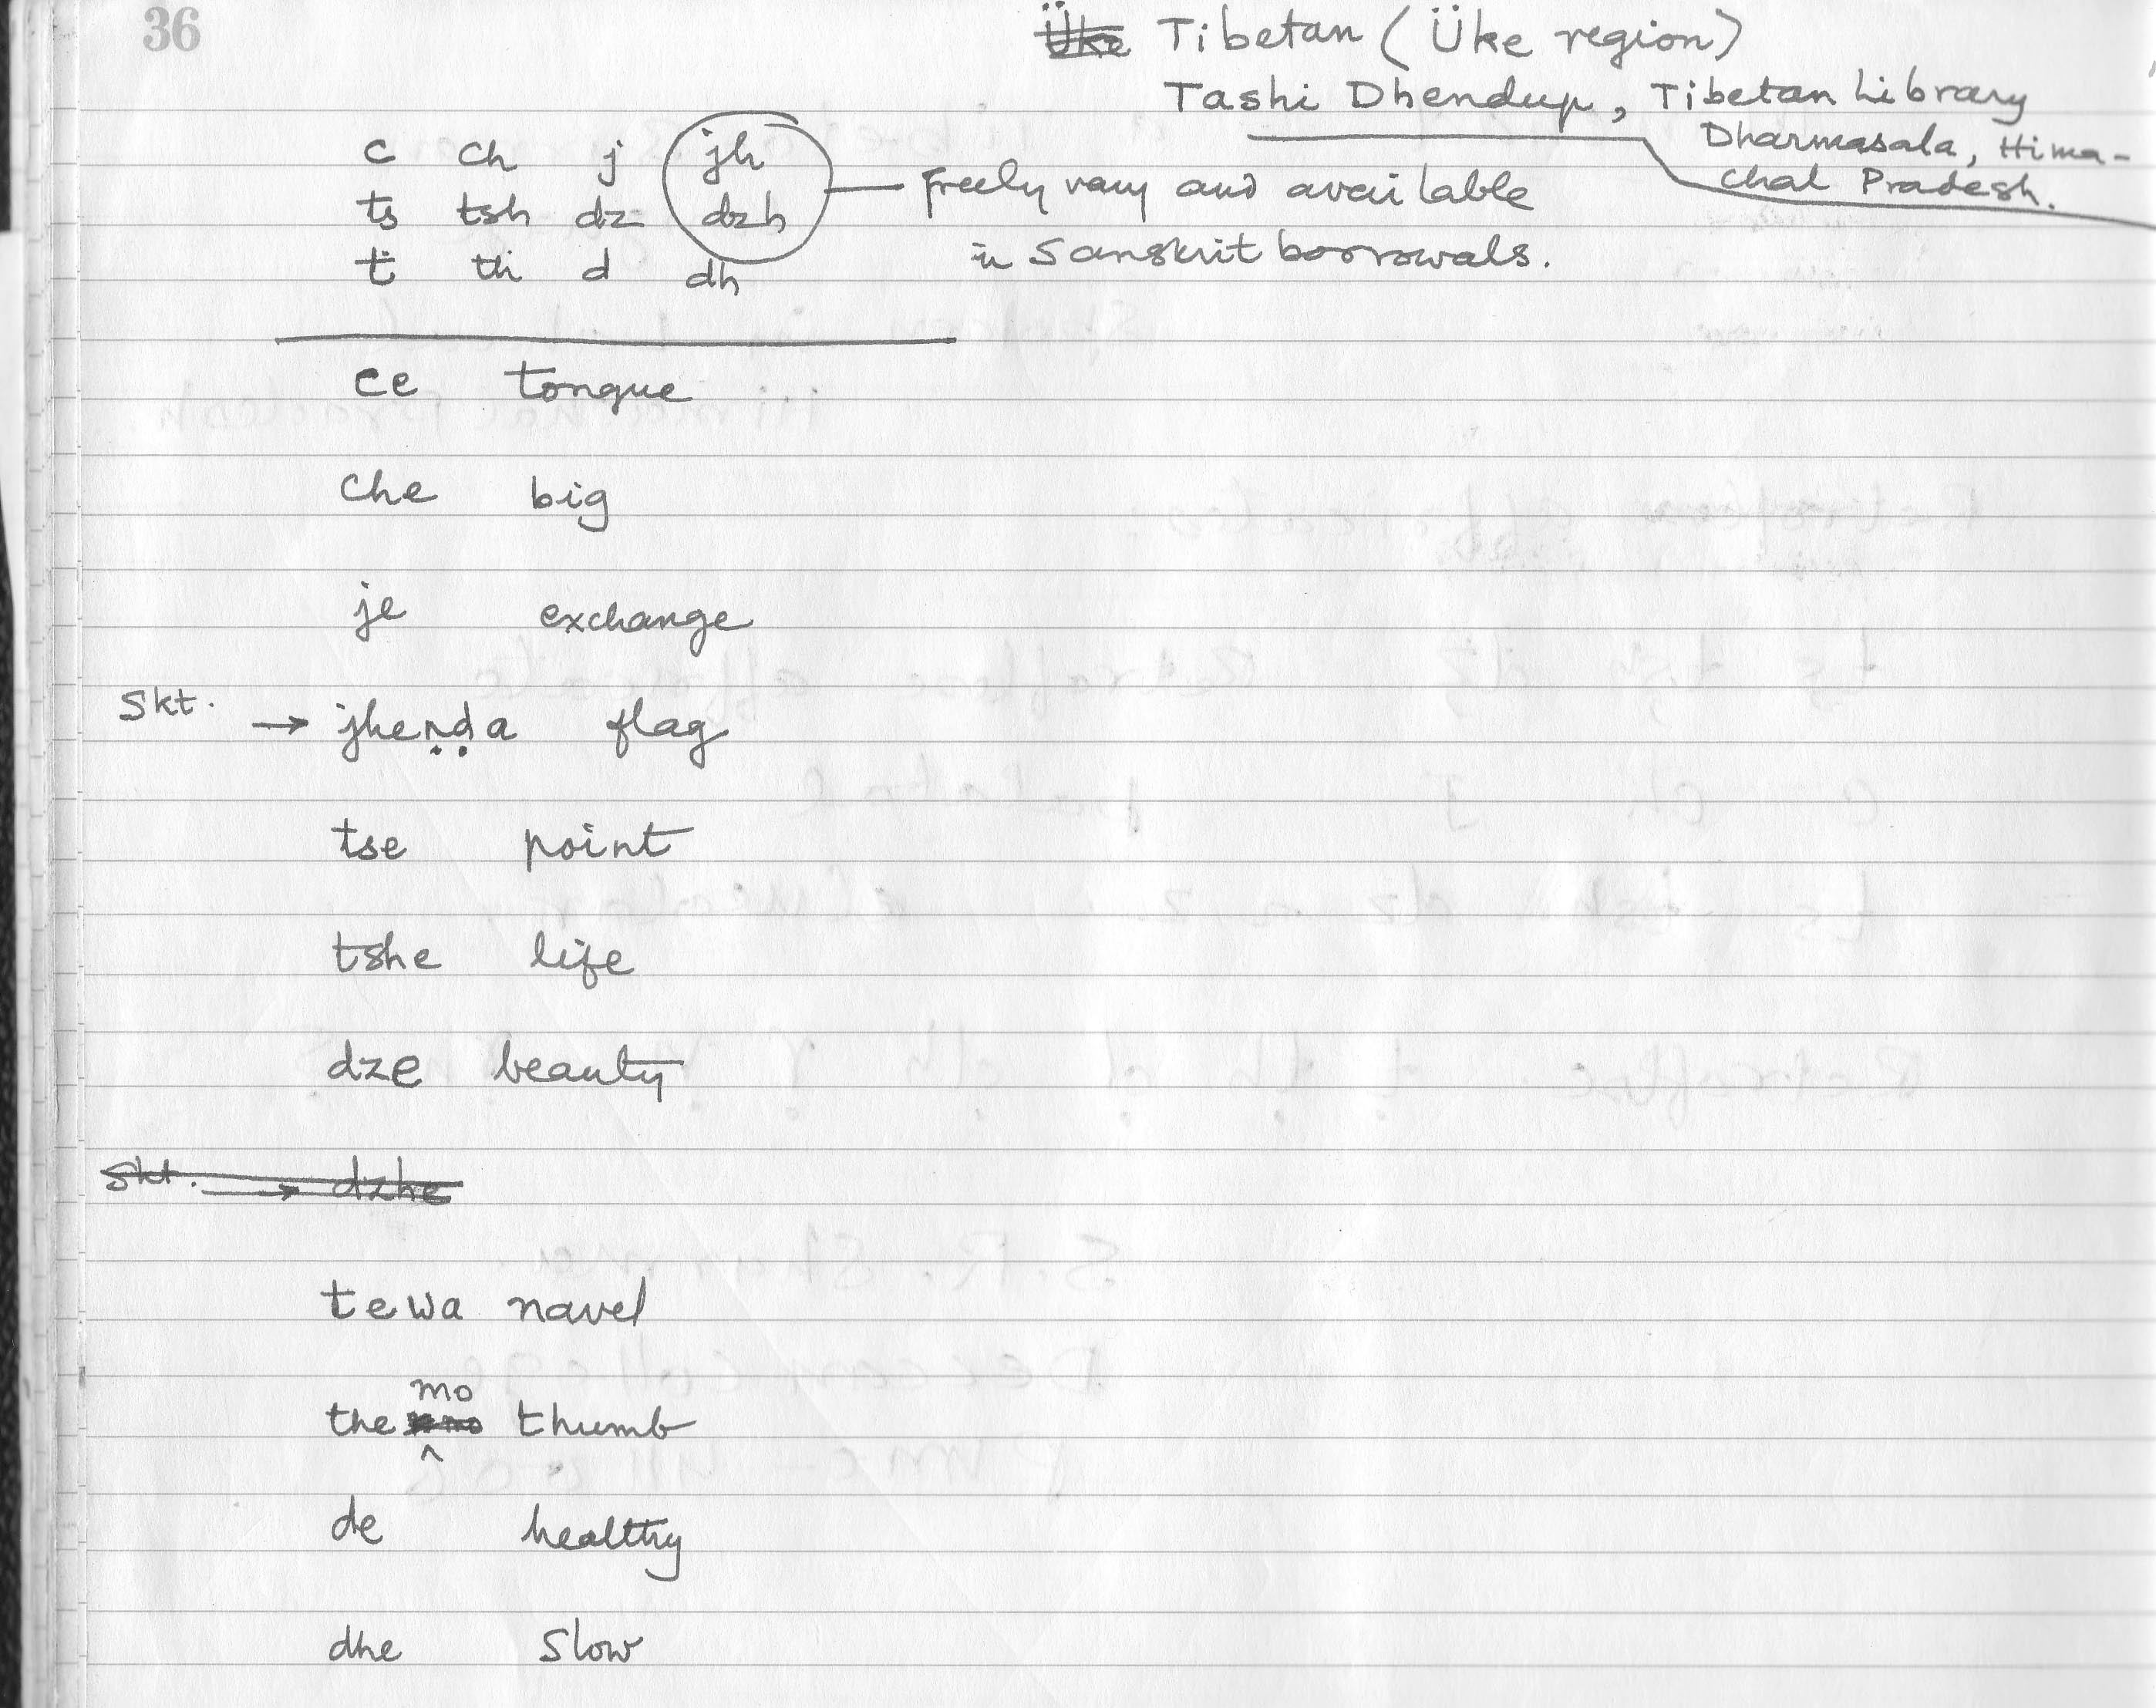 36
Üke Tibetan (Üke region)
Tashi Dhendup, Tibetan Library
Dharmasala, Hima-
chal Pradesh.
c ch j jh
ts tsh dz dzh
t th d dh
freely vary and available
in Sanskrit borrowals.
ce tongue
che big
je exchange
Skt. → jheṇḍa flag
tse point
tshe life
dze beauty
Skt. → dzhe
tewa navel
mo
the thumb
de healthy
dhe slow